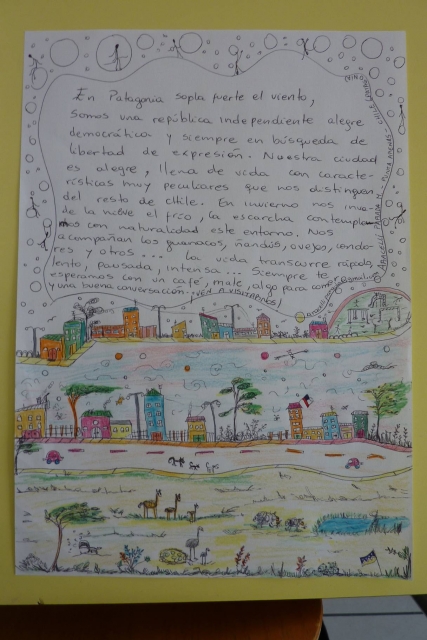 En Patagonia sopla fuerte el viento,
somos una república independiente alegre
democrática y siempre en búsqueda de
libertad de expresión. Nuestra ciudad
es alegre, llena de vida con caracte-
rísticas muy peculiares que nos distinguen
del resto de Chile. En invierno nos inva-
de la nieve el frío, la escarcha contempla-
mos con naturalidad este entorno. Nos
acompañan los guanacos, ñandús, ovejas, cóndo-
res y otros... la vida transcurre rápido,
lento, pausada, intensa... Siempre te
esperamos con un café, mate, algo para comer
y una buena conversación. ¡VEN A VISITARNOS!